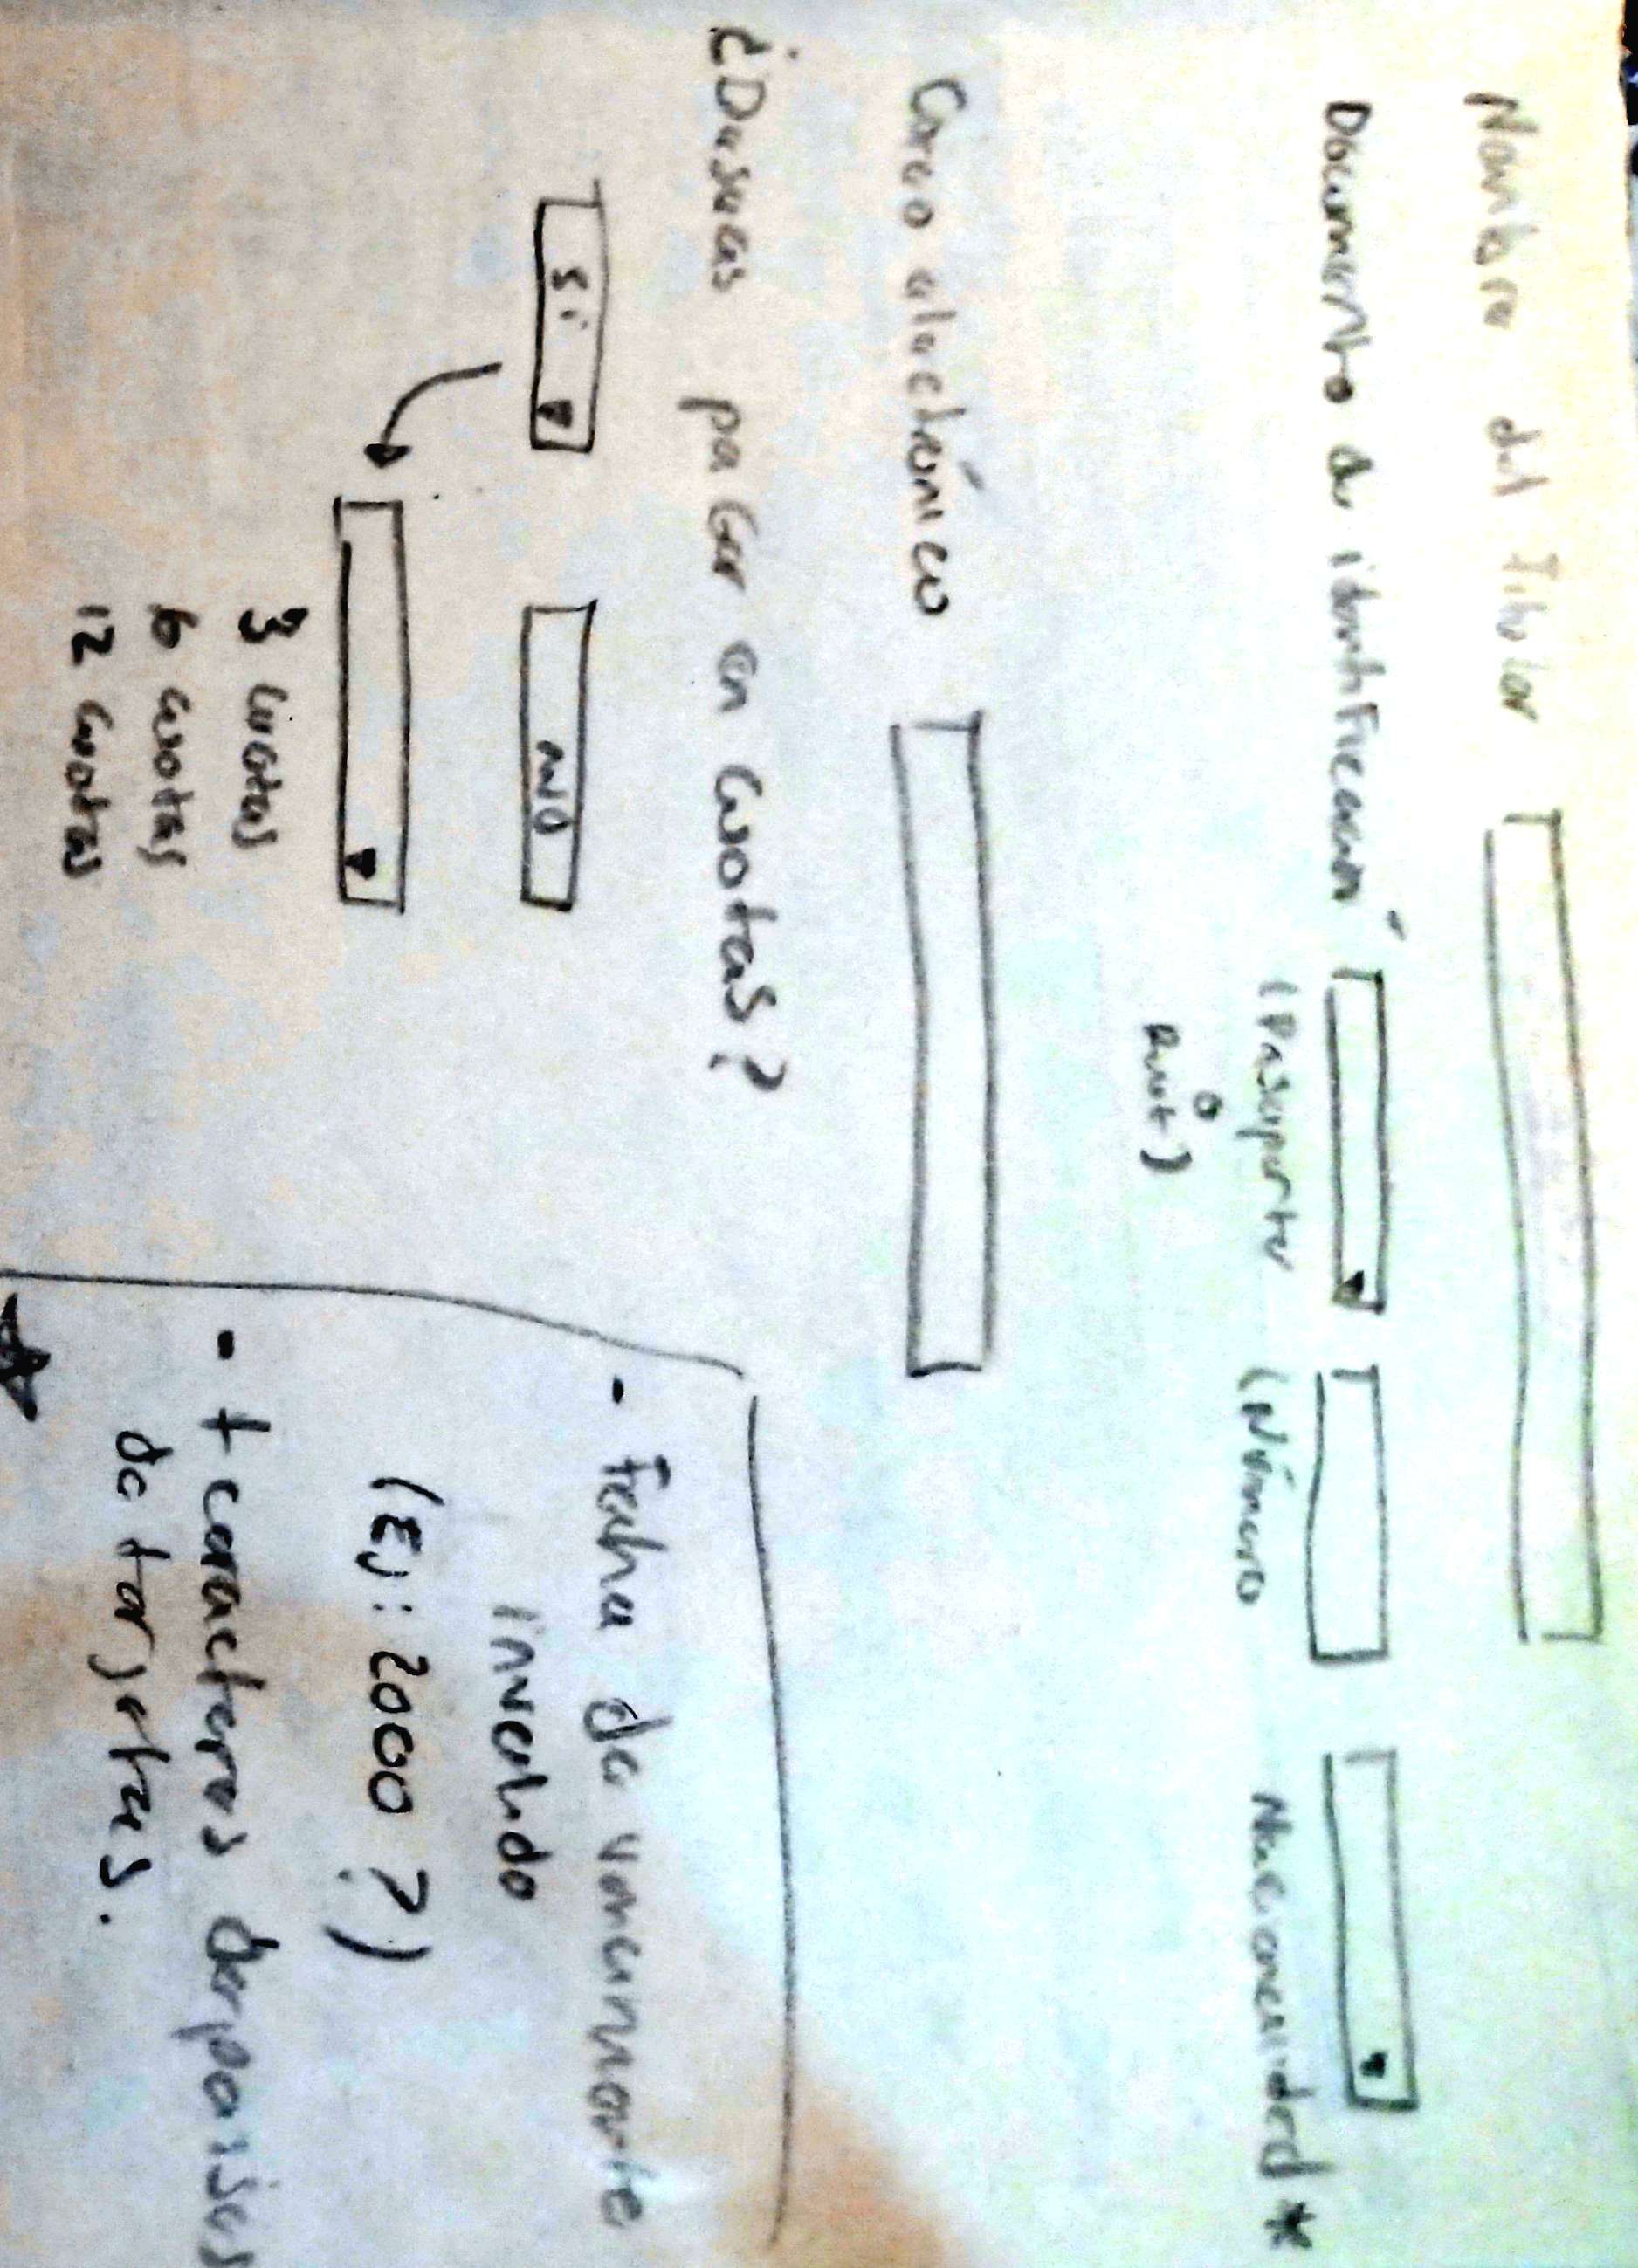 Nombre del Titular
Documento de identificación
(Pasaporte
o
Rut)
(Número
Nacionalidad *
Correo electrónico
¿Deseas pagar en cuotas?
Si
NO
3 cuotas
6 cuotas
12 cuotas
- Fecha de vencimiento
invalido
(Ej: 2000 ?)
- + caracteres
de tarjetas.